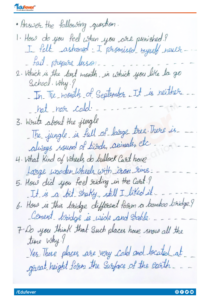 Edufever
• Answer the following question
1. How do you feel when you are punished?
I felt ashamed. I promised myself
2. Which is the best month in which you like to go
School. Why?
In the month of September. It is neither
hot nor cold.
3. Write about the jungle
The jungle is full of large tree. There is
always sound of birds, animals etc
4. What kind of wheels do bullock Cart have
Large wooden wheels with iron rims.
5. How did you feel riding in the Cart?
It is a bit shaky, still I liked it.
6. How is this bridge different from a bamboo bridge?
Cement bridge is wide and stable
7. Do you think that Such places have snow all the
time Why?
Yes. These places are very Cold and located at
great height from the Surface of the earth.